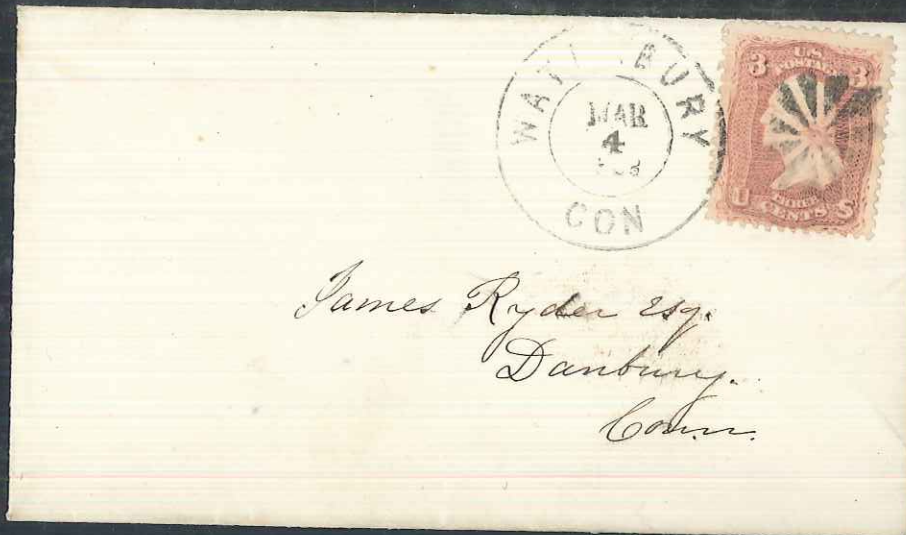 WATERBURY
MAR
4
CON
3 U.S. POSTAGE 3
U THREE S
CENTS
James Ryder Esq.
Danbury.
Conn.